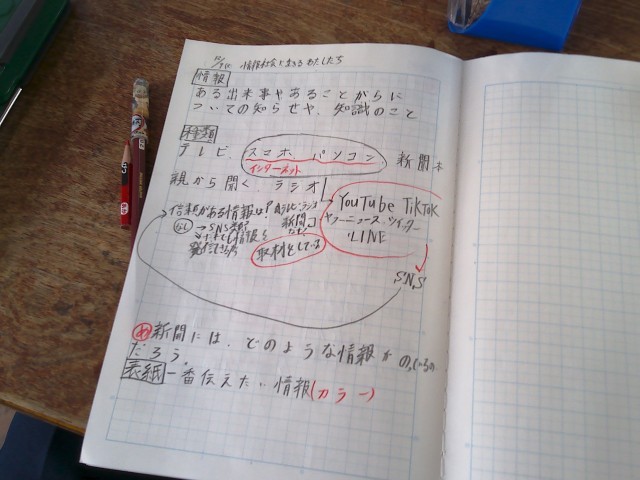 情報社会に生きるわたしたち
情報
ある出来事やあることがらに
ついての知らせや、知識のこと
種類
テレビ、スマホ、パソコン 新聞本
インターネット
親から聞く ラジオ
YouTube TikTok
ヤフーニュース ツイッター
LINE
SNS
信頼がある情報は?
なし→SNS
情報を
発信できる
新聞
取材をしている
め 新聞には、どのような情報が のっているの
だろう。
表紙 一番伝えたい情報(カラー)